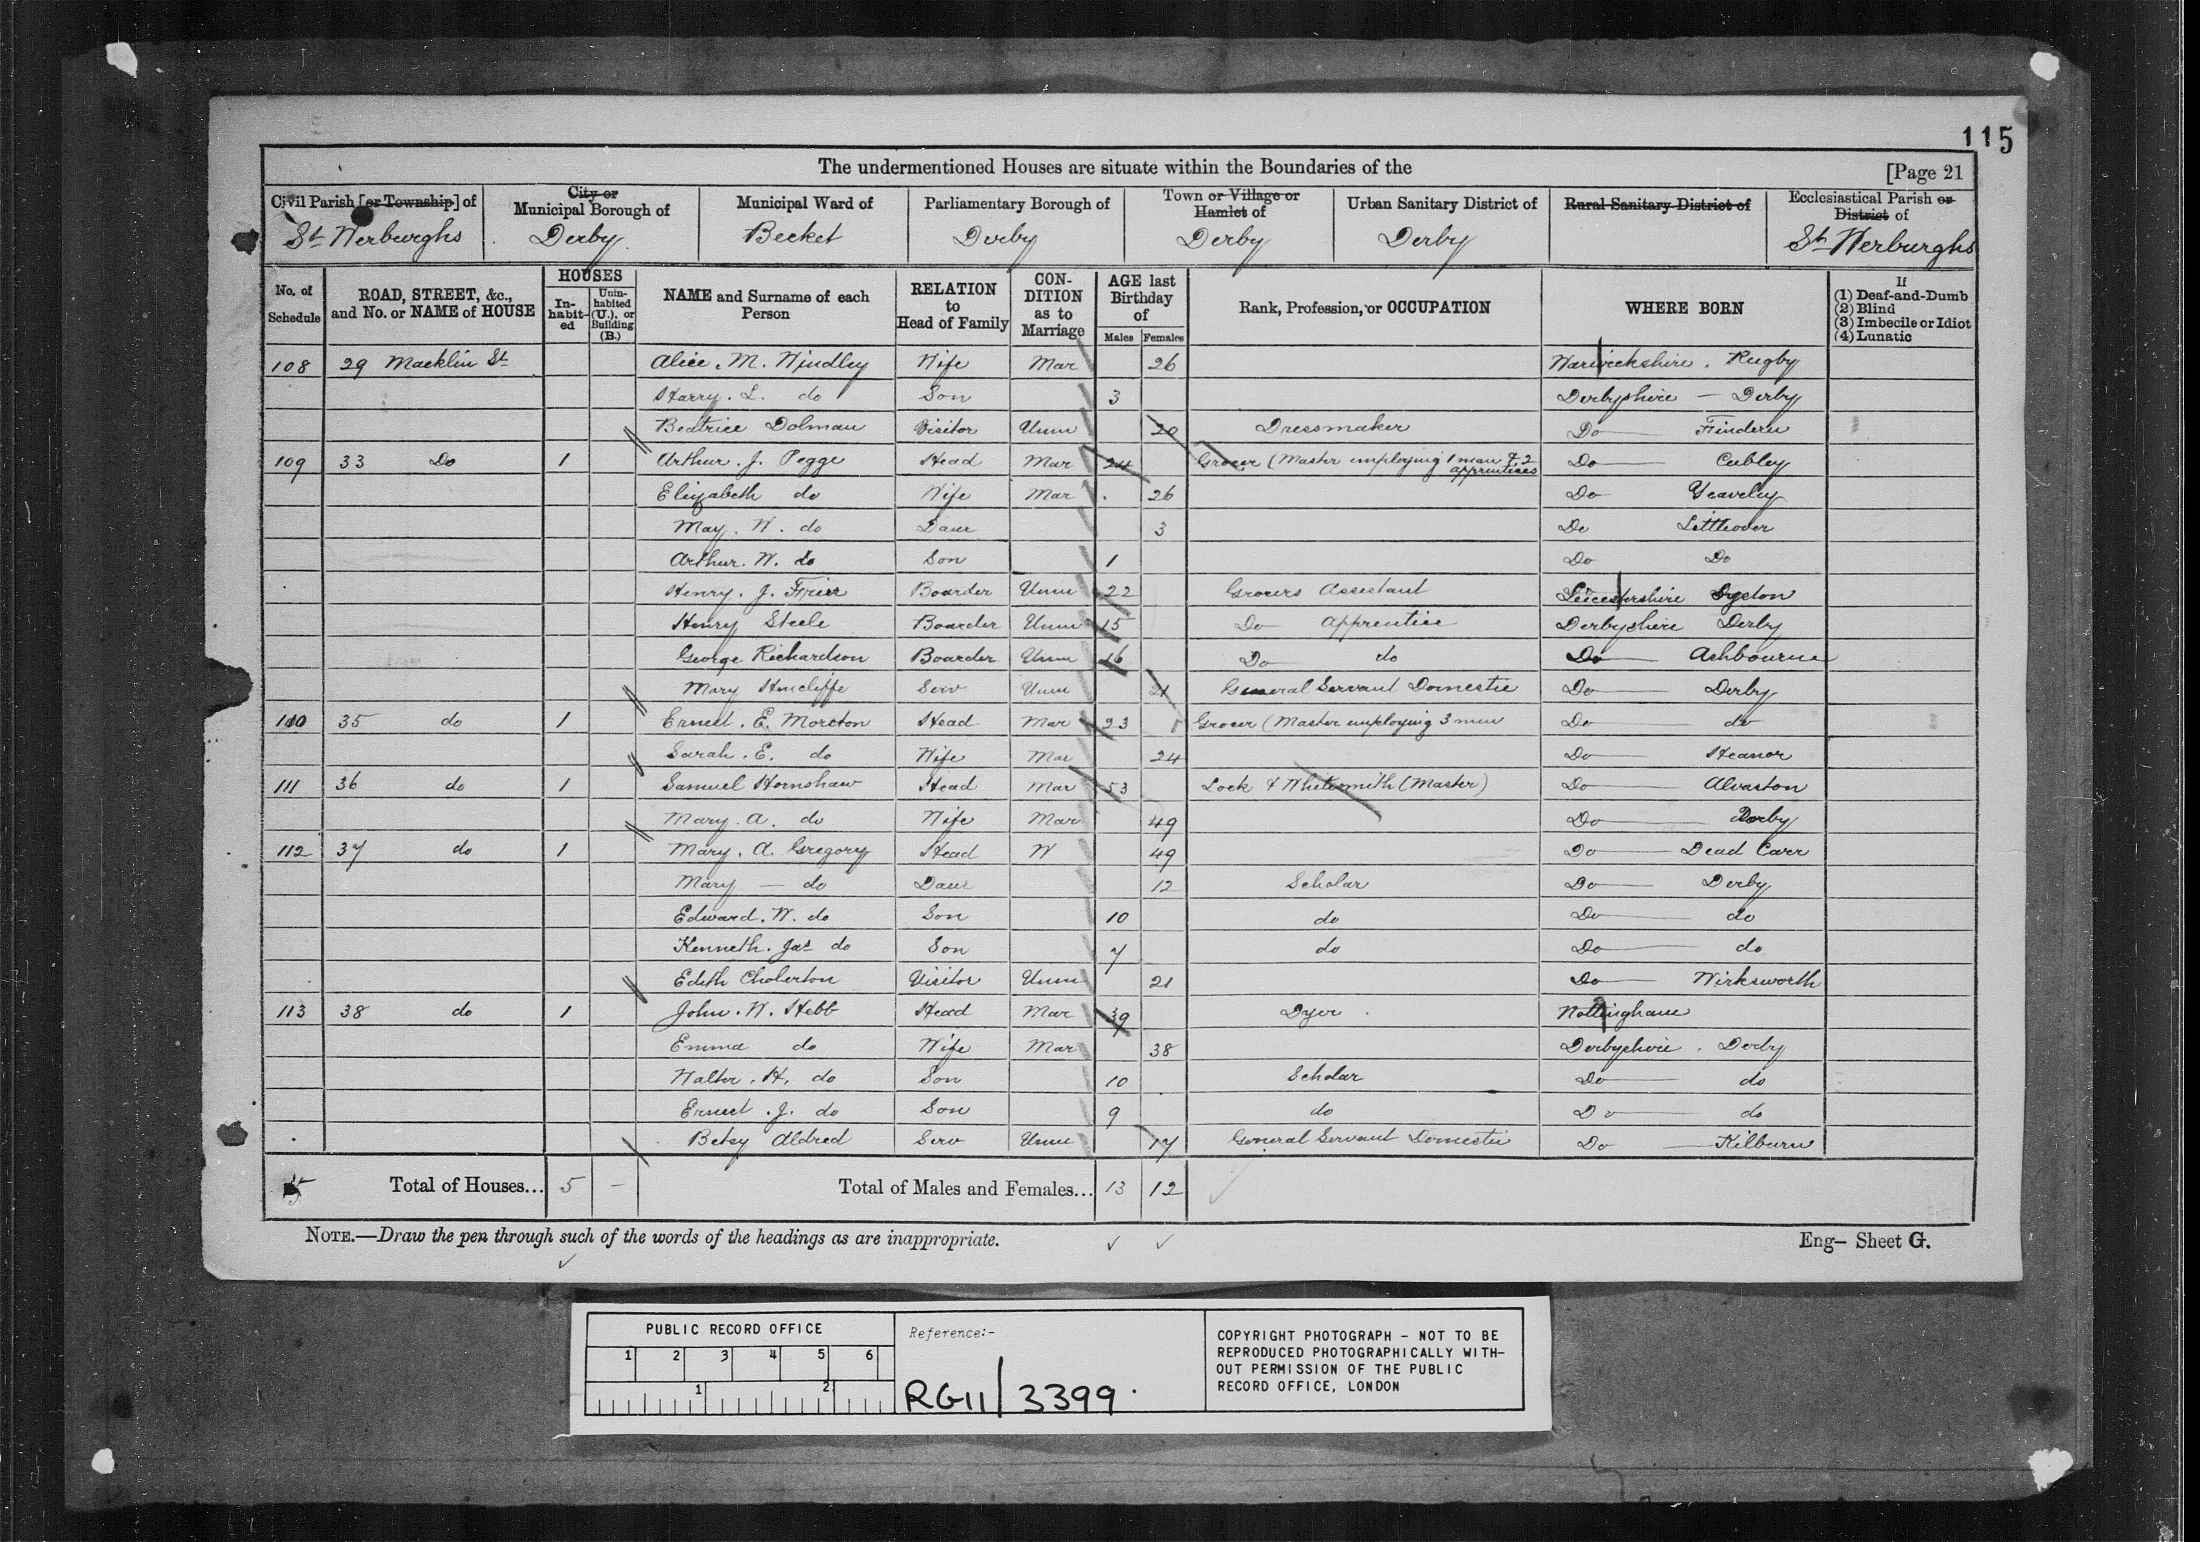 115
The undermentioned Houses are situate within the Boundaries of the [Page 21
Civil Parish [or Township] of City or Municipal Borough of Municipal Ward of Parliamentary Borough of Town or Village or Hamlet of Urban Sanitary District of Rural Sanitary District of Ecclesiastical Parish or District of
St Werburghs Derby Becket Derby Derby Derby St Werburghs
No. of Schedule ROAD, STREET, &c., and No. or NAME of HOUSE HOUSES In-habit-ed Unin-habited (U.), or Building (B.) NAME and Surname of each Person RELATION to Head of Family CON-DITION as to Marriage AGE last Birthday of Males Females Rank, Profession, or OCCUPATION WHERE BORN If (1) Deaf-and-Dumb (2) Blind (3) Imbecile or Idiot (4) Lunatic
108 29 Macklin St Alice. M. Windley Wife Mar 26 Warwickshire. Rugby
Harry. L. do Son 3 Derbyshire — Derby
Beatrice Dolman Visitor Unm 20 Dressmaker Do Findern
109 33 Do 1 Arthur. J. Pegge Head Mar 24 Grocer (Master employing 1 man & 2 apprentices Do Cubley
Elizabeth do Wife Mar 26 Do Yeaveley
May. W. do Daur 3 Do Littleover
Arthur. W. do Son 1 Do Do
Henry. J. Boarder Unm 22 Grocers Assistant Leicestershire
Henry Steele Boarder Unm 15 Do Apprentice Derbyshire Derby
George Richardson Boarder Unm 16 Do do Do Ashbourne
Mary Hincliffe Serv Unm 21 General Servant Domestic Do Derby
110 35 do 1 Ernest. E. Moreton Head Mar 23 Grocer (Master employing 3 men Do do
Sarah. E. do Wife Mar 24 Do Heanor
111 36 do 1 Samuel Hornshaw Head Mar 53 Lock & Whitesmith (Master) Do Alvaston
Mary. A. do Wife Mar 49 Do Derby
112 37 do 1 Mary. A. Gregory Head W 49 Do Dead Carr
Mary — do Daur 12 Scholar Do Derby
Edward. W. do Son 10 do Do do
Kenneth. Jas do Son 7 do Do do
Edith Cholerton Visitor Unm 21 Do Wirksworth
113 38 do 1 John. W. Hebb Head Mar 39 Dyer Nottingham
Emma do Wife Mar 38 Derbyshire. Derby
Walter. H. do Son 10 Scholar Do do
Ernest. J. do Son 9 do Do do
Betsy Aldred Serv Unm 17 General Servant Domestic Do Kilburn
5 Total of Houses... 5 – Total of Males and Females... 13 12
NOTE.—Draw the pen through such of the words of the headings as are inappropriate.
Eng– Sheet G.
PUBLIC RECORD OFFICE
1 2 3 4 5 6
1 2
Reference:-
RG11/3399
COPYRIGHT PHOTOGRAPH - NOT TO BE
REPRODUCED PHOTOGRAPHICALLY WITH-
OUT PERMISSION OF THE PUBLIC
RECORD OFFICE, LONDON